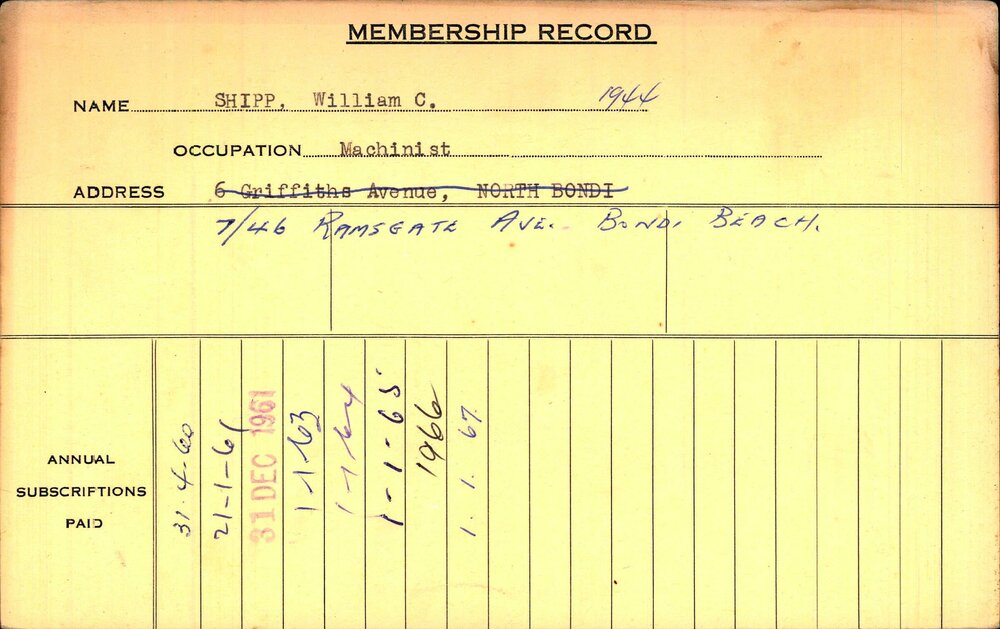 MEMBERSHIP RECORD
NAME SHIPP, William C. 1944
OCCUPATION Machinist
ADDRESS 6 Griffiths Avenue, NORTH BONDI
7/46 RAMSGATE AVE. BONDI BEACH.
ANNUAL
SUBSCRIPTIONS
PAID
31.4.60
21-1-61
31 DEC 1961
1-1-63
1-1-64
1-1-65
1966
1.1.67